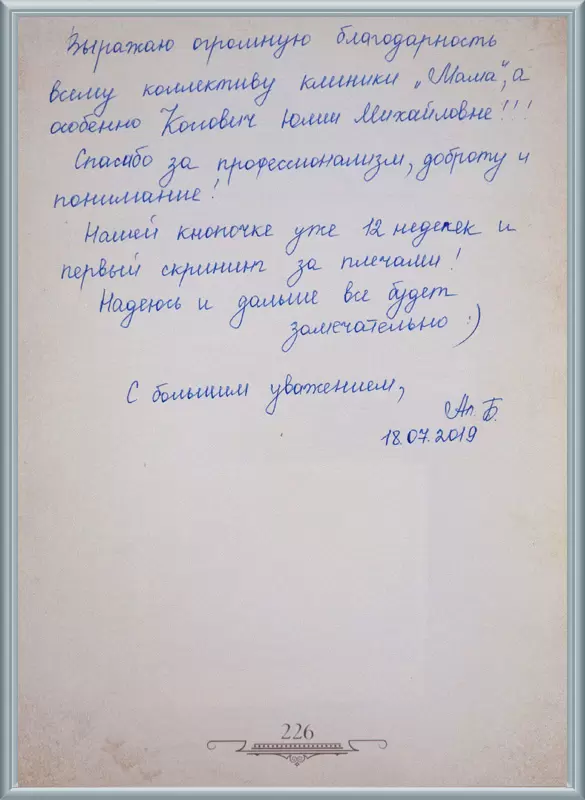 Выражаю огромную благодарность
всему коллективу клиники „Мама“, а
особенно Копович Юлии Михайловне!!!
Спасибо за профессионализм, доброту и
понимание!
Нашей кнопочке уже 12 неделек и
первый скрининг за плечами!
Надеюсь и дальше все будет
замечательно :)
С большим уважением,
Ал. Б.
18.07.2019
226